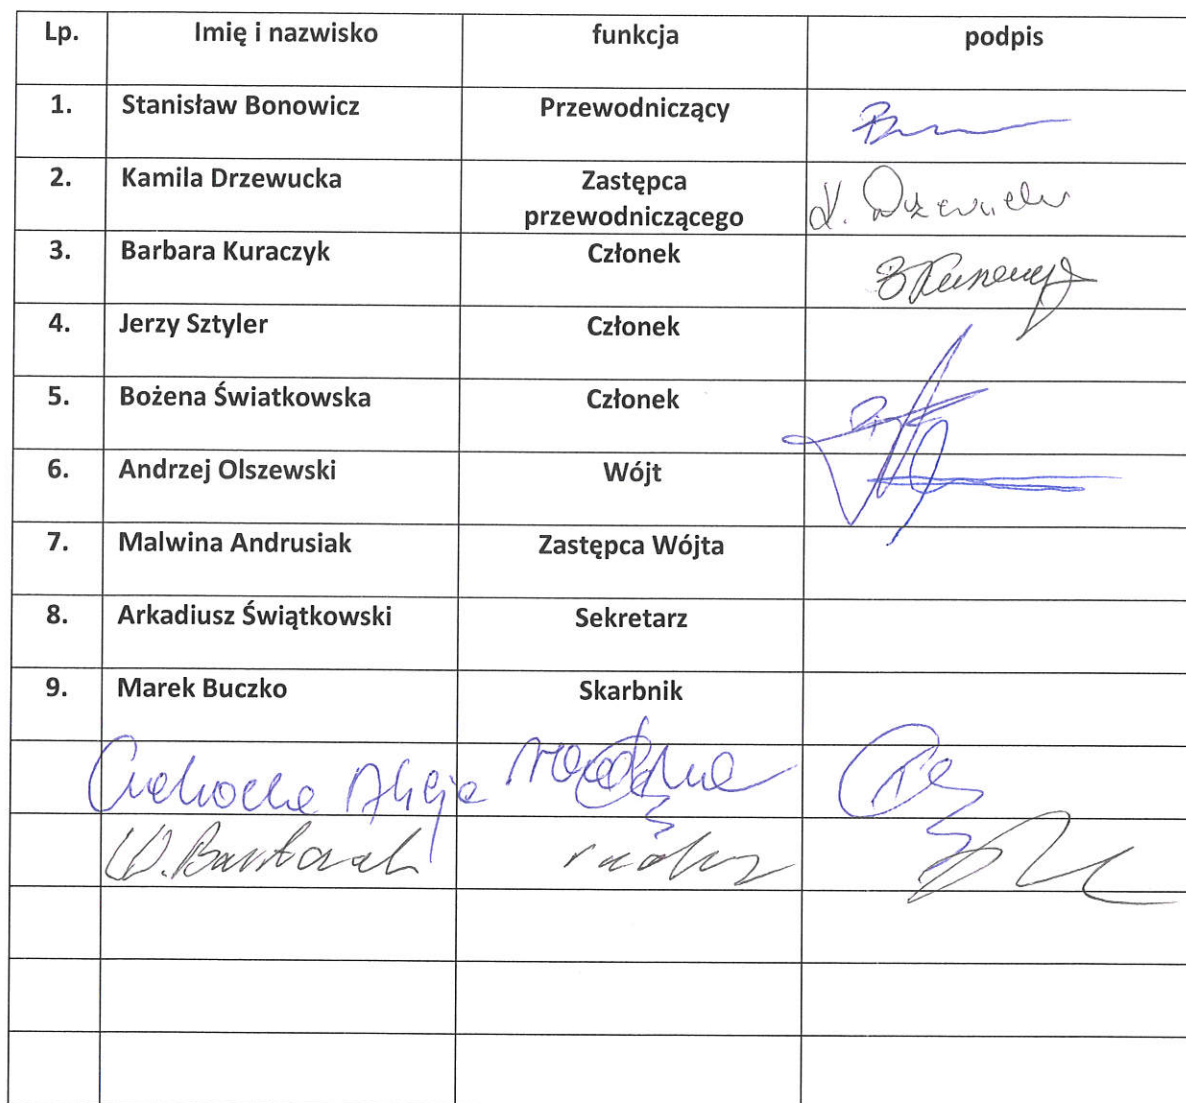 Lp. Imię i nazwisko funkcja podpis
1. Stanisław Bonowicz Przewodniczący
2. Kamila Drzewucka Zastępca
przewodniczącego K. Drzewucka
3. Barbara Kuraczyk Członek
4. Jerzy Sztyler Członek
5. Bożena Światkowska Członek
6. Andrzej Olszewski Wójt
7. Malwina Andrusiak Zastępca Wójta
8. Arkadiusz Świątkowski Sekretarz
9. Marek Buczko Skarbnik
Alicja radna
W. Bartczak radny